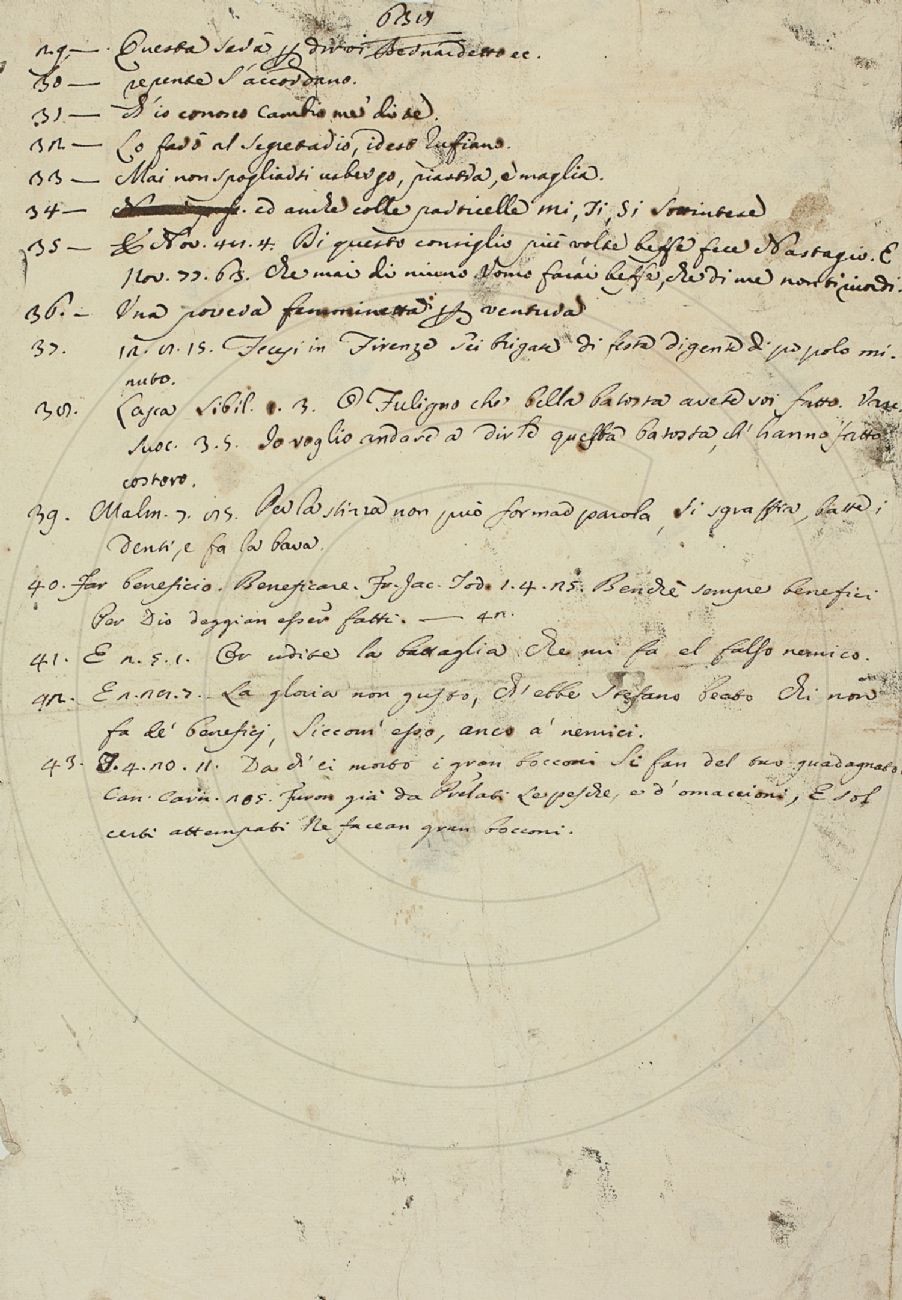 29. — Questa serà dirvi Bernardetto ec.
30 — repente s'accordano.
31 — Ch'io conosco cambio me' di te.
32 — Lo farò al segretario, idest Ruffiano.
33 — Mai non spogliarsi usbergo, piastra, e maglia.
34 — ed anche colle particelle mi, ti, si sottintese
35 — Nov. 42. 4. Di questo consiglio più volte beffe fece Nastagio. E
Nov. 77. 63. che mai di niuno uomo farai beffe, che di me non ti ricordi.
36. — Una povera femminetta ventura
37. 12. 2. 15. Fecesi in Firenze sei brigate di festa di gente di popolo mi-
nuto.
38. Lasca Sibil. 3. O Fuligno che bella batosta avete voi fatto.
Suoc. 3. 5. Io voglio andare a dirle questa batosta, ch' hanno fatto
costoro.
39. Malm. 7. Per la stizza non può formar parola, si sgraffia, batte i
denti, e fa la bava.
40. Far beneficio. Beneficare. Fr. Jac. Tod. 1. 4. 25. Benchè sempre benefici
Per Dio deggian esser fatti. — 42.
41. E 2. 5. 1. Or udite la battaglia Che mi fa el falso nemico.
42. E 2. 7. La gloria non gusto, ch' ebbe Stefano beato Chi non
fa de' beneficj, Siccom' esso, anco a' nemici.
43. 4. 20. 11. Da ch' ei morto i gran bocconi Si fan del tuo guadagnato.
Can. Carn. 205. Furon già da Prelati Le pesche, e d' omaccioni, E sol
certi attempati Ne facean gran bocconi.